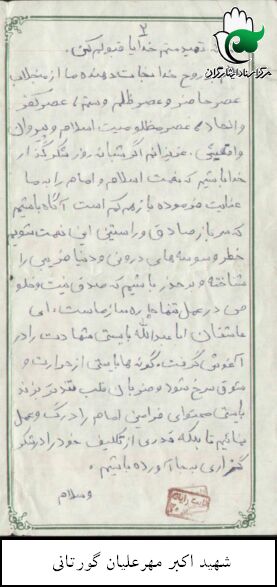 ۳
مرکز اسناد ایثارگران
شهیدم خدایا قبولم کن.
روح خدا نجات دهنده ما از منجلاب
عصر حاضر و عصر ظلم و ستم، عصر کفر
و الحاد، عصر مظلومیت اسلام و پیروان
واقعیش. عزیزانم اگر شبانه روز شکرگذار
خدا باشیم که نعمت اسلام و امام را به ما
عنایت فرموده باز هم کم است آگاه باشیم
که سرباز صادق و راستین این نعمت شویم
خطر وسوسه های درونی و دنیا فریبی را
شناخته و بر حذر باشیم که صدق نیت و خلو
ص در عمل تنها چاره ساز ماست، ای
عاشقان اباعبدالله بایستی شهادت را در
آغوش گرفت، گونه ها بایستی از حرارت و
شوق سرخ شود و ضربان قلب تندتر بزند
بایستی محتوای فرامین امام را درک و عمل
نمائیم تا بلکه قدری از تکلیف خود را در شکر
گزاری بجا آورده باشیم.
والسلام
شهید اکبر مهرعلیان گورتانی